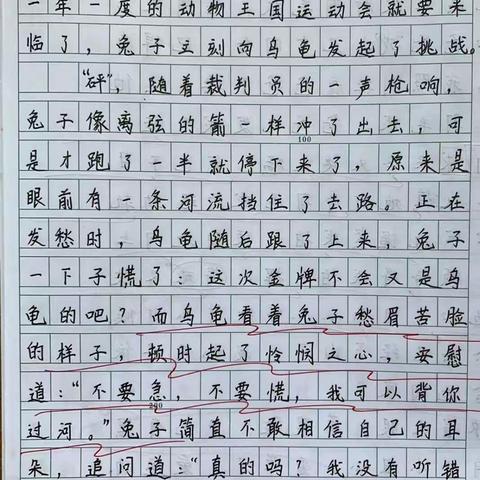 一年一度的动物王国运动会就要来
临了，兔子立刻向乌龟发起了挑战。
“砰”，随着裁判员的一声枪响，
兔子像离弦的箭一样冲了出去，可
100
是才跑了一半就停下来了，原来是
眼前有一条河流挡住了去路。正在
发愁时，乌龟随后跟了上来，兔子
一下子慌了：这次金牌不会又是乌
龟的吧？而乌龟看着兔子愁眉苦脸
的样子，顿时起了怜悯之心，安慰
道：“不要急，不要慌，我可以背你
200
过河。”兔子简直不敢相信自己的耳
朵，追问道：“真的吗？我没有听错